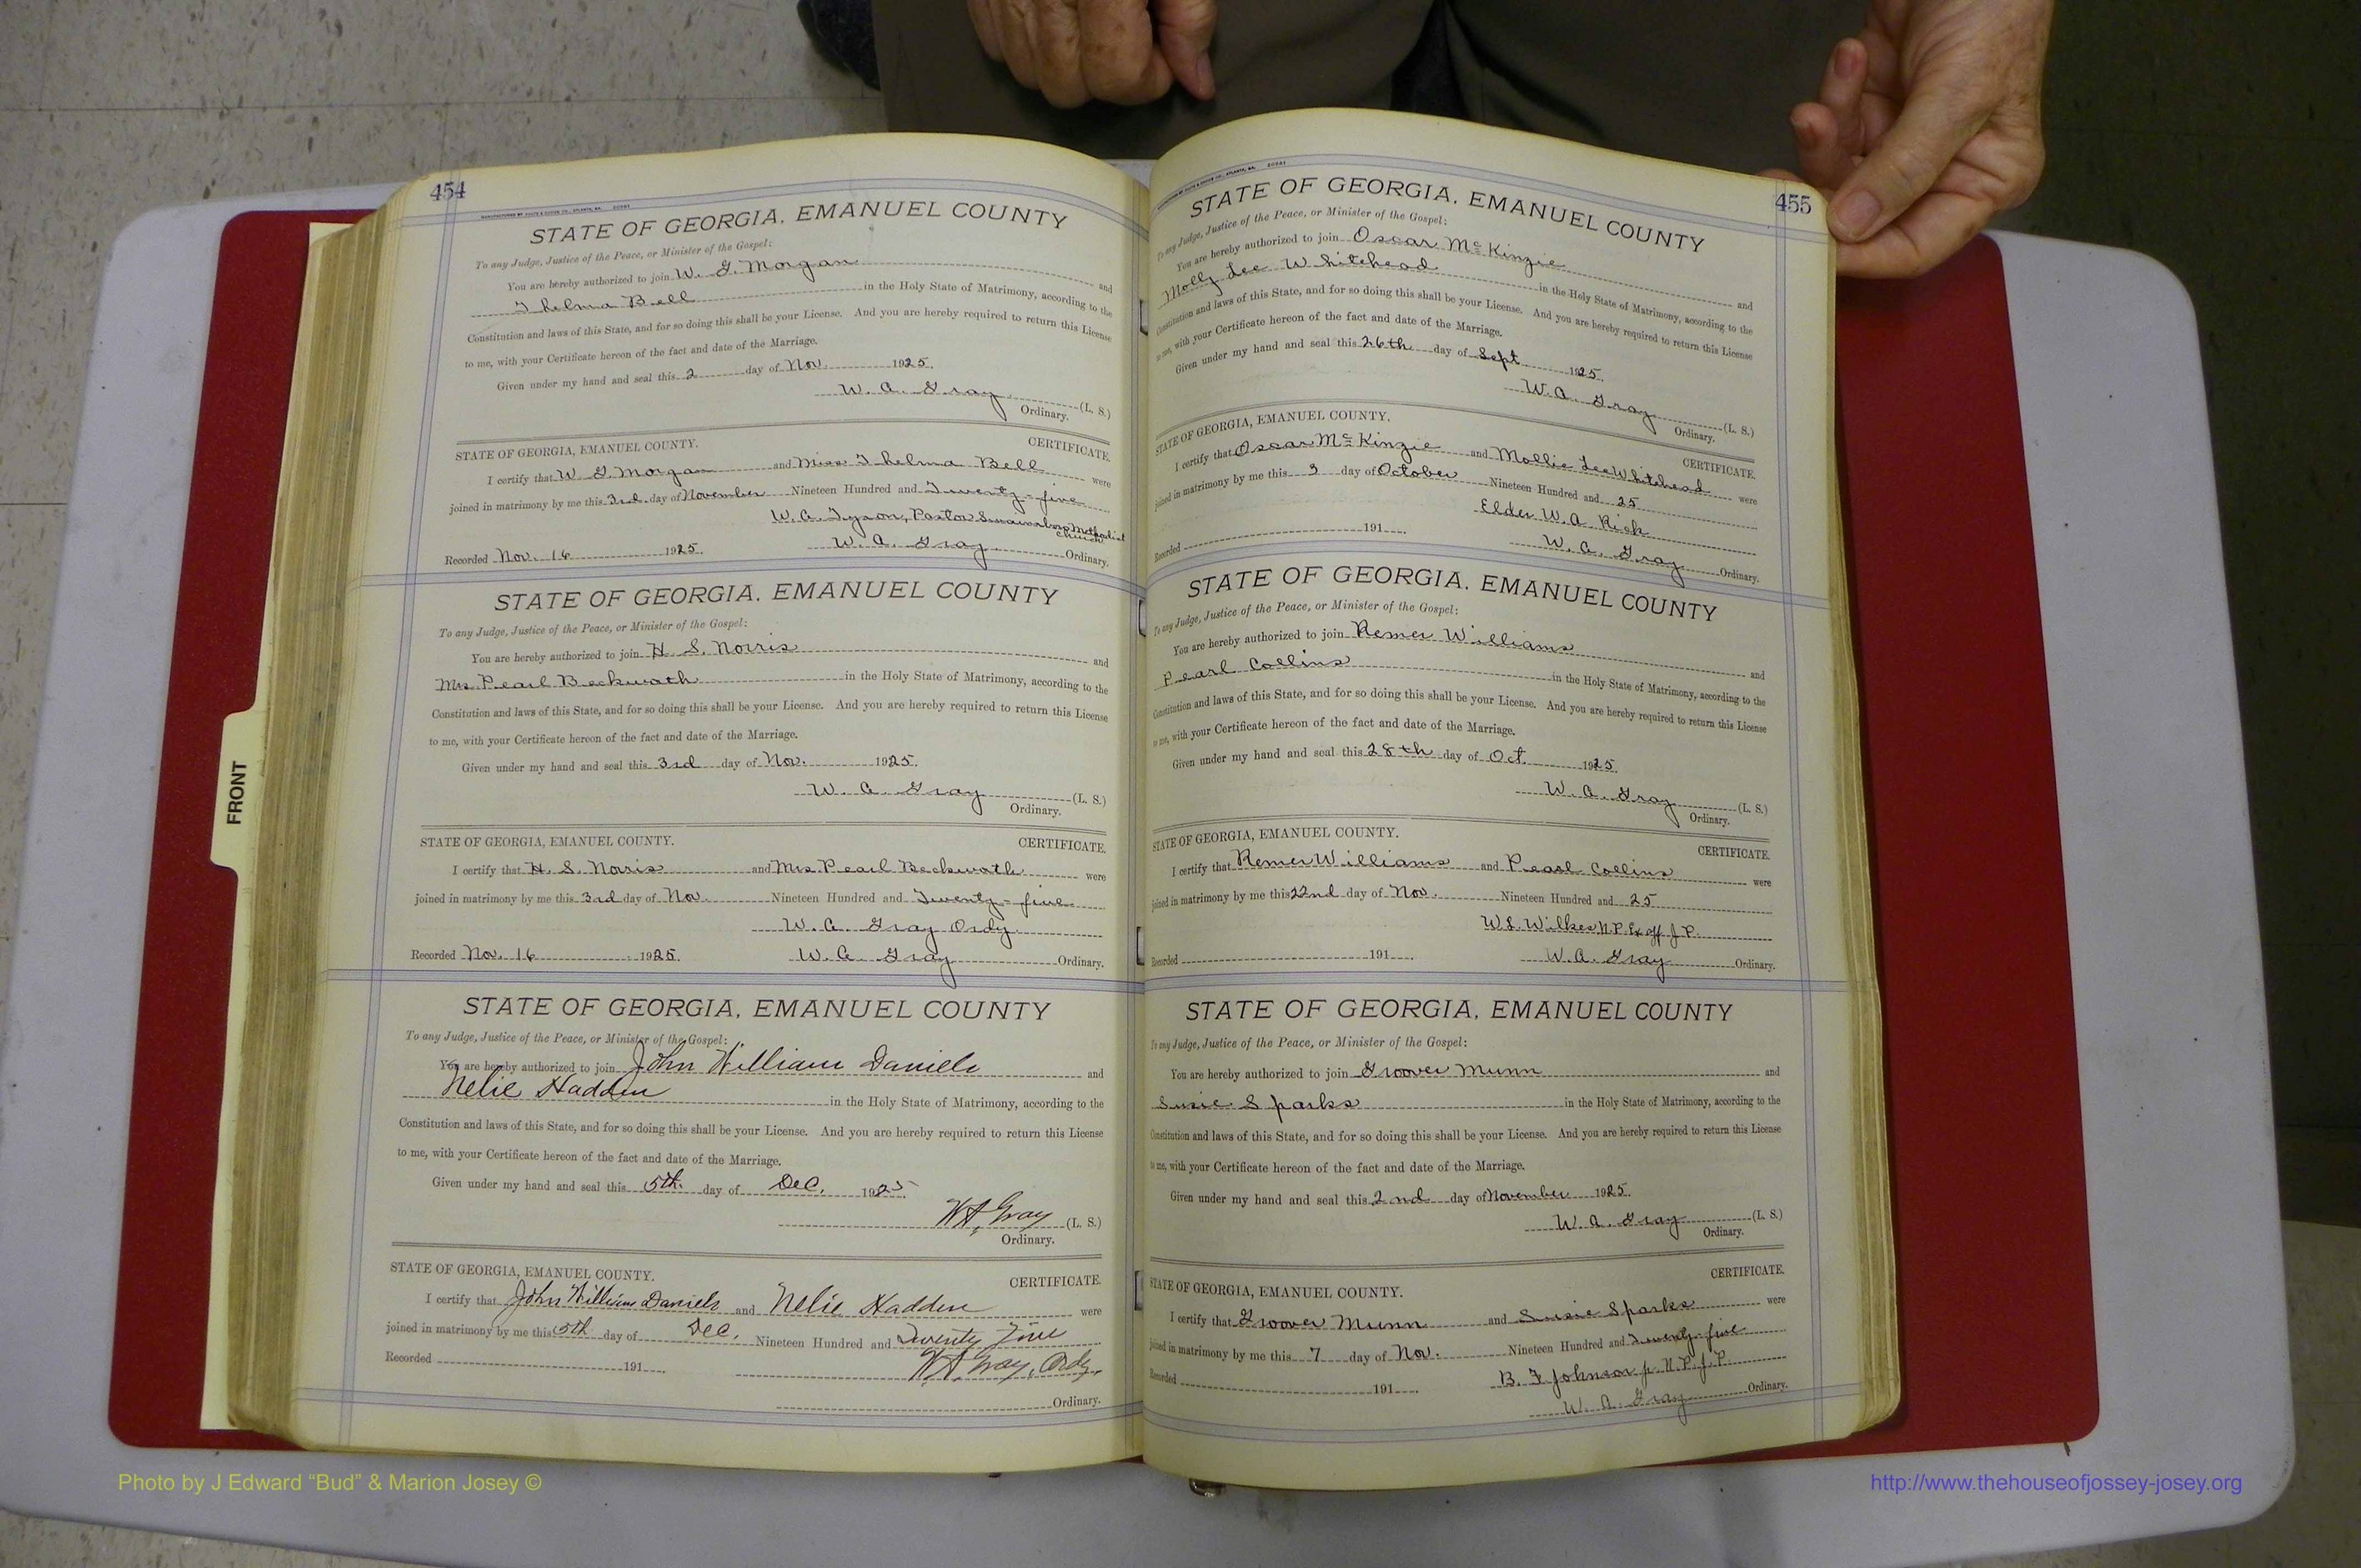 454
STATE OF GEORGIA, EMANUEL COUNTY
To any Judge, Justice of the Peace, or Minister of the Gospel:
You are hereby authorized to join W. G. Morgan and
Thelma Bell in the Holy State of Matrimony, according to the
Constitution and laws of this State, and for so doing this shall be your License. And you are hereby required to return this License
to me, with your Certificate hereon of the fact and date of the Marriage.
Given under my hand and seal this 2 day of Nov. 1925.
W. A. Gray (L. S.)
Ordinary.
STATE OF GEORGIA, EMANUEL COUNTY. CERTIFICATE.
I certify that W. G. Morgan and Miss Thelma Bell were
joined in matrimony by me this 3rd day of November Nineteen Hundred and Twenty-five
W. A. Tyson, Pastor Swainsboro Methodist Church
Recorded Nov. 16 1925. W. A. Gray Ordinary.
STATE OF GEORGIA, EMANUEL COUNTY
To any Judge, Justice of the Peace, or Minister of the Gospel:
You are hereby authorized to join H. S. Norris and
Mrs. Pearl Beckwoth in the Holy State of Matrimony, according to the
Constitution and laws of this State, and for so doing this shall be your License. And you are hereby required to return this License
to me, with your Certificate hereon of the fact and date of the Marriage.
Given under my hand and seal this 3rd day of Nov. 1925.
W. A. Gray (L. S.)
Ordinary.
STATE OF GEORGIA, EMANUEL COUNTY. CERTIFICATE.
I certify that H. S. Norris and Mrs. Pearl Beckwoth were
joined in matrimony by me this 3rd day of Nov. Nineteen Hundred and Twenty-five
W. A. Gray Ordy.
Recorded Nov. 16 1925. W. A. Gray Ordinary.
STATE OF GEORGIA, EMANUEL COUNTY
To any Judge, Justice of the Peace, or Minister of the Gospel:
You are hereby authorized to join John William Daniels and
Nelie Hadden in the Holy State of Matrimony, according to the
Constitution and laws of this State, and for so doing this shall be your License. And you are hereby required to return this License
to me, with your Certificate hereon of the fact and date of the Marriage.
Given under my hand and seal this 5th. day of Dec. 1925.
W. A. Gray (L. S.)
Ordinary.
STATE OF GEORGIA, EMANUEL COUNTY. CERTIFICATE.
I certify that John William Daniels and Nelie Hadden were
joined in matrimony by me this 5th day of Dec. Nineteen Hundred and Twenty Five
W. A. Gray, Ordy.
Recorded 191
Ordinary.
455
STATE OF GEORGIA, EMANUEL COUNTY
To any Judge, Justice of the Peace, or Minister of the Gospel:
You are hereby authorized to join Oscar McKinzie and
Molly Lee Whitehead in the Holy State of Matrimony, according to the
Constitution and laws of this State, and for so doing this shall be your License. And you are hereby required to return this License
to me, with your Certificate hereon of the fact and date of the Marriage.
Given under my hand and seal this 26th day of Sept 1925.
W. A. Gray (L. S.)
Ordinary.
STATE OF GEORGIA, EMANUEL COUNTY. CERTIFICATE.
I certify that Oscar McKinzie and Mollie Lee Whitehead were
joined in matrimony by me this 3 day of October Nineteen Hundred and 25
Elder W. A Rich
Recorded 191 W. A. Gray Ordinary.
STATE OF GEORGIA, EMANUEL COUNTY
To any Judge, Justice of the Peace, or Minister of the Gospel:
You are hereby authorized to join Remer Williams and
Pearl Collins in the Holy State of Matrimony, according to the
Constitution and laws of this State, and for so doing this shall be your License. And you are hereby required to return this License
to me, with your Certificate hereon of the fact and date of the Marriage.
Given under my hand and seal this 28th day of Oct. 1925.
W. A. Gray (L. S.)
Ordinary.
STATE OF GEORGIA, EMANUEL COUNTY. CERTIFICATE.
I certify that Remer Williams and Pearl Collins were
joined in matrimony by me this 22nd day of Nov. Nineteen Hundred and 25
W. S. Wilkes N.P. Ex off J.P.
Recorded 191 W. A. Gray Ordinary.
STATE OF GEORGIA, EMANUEL COUNTY
To any Judge, Justice of the Peace, or Minister of the Gospel:
You are hereby authorized to join Groover Munn and
Susie Sparks in the Holy State of Matrimony, according to the
Constitution and laws of this State, and for so doing this shall be your License. And you are hereby required to return this License
to me, with your Certificate hereon of the fact and date of the Marriage.
Given under my hand and seal this 2nd day of November 1925.
W. A. Gray (L. S.)
Ordinary.
STATE OF GEORGIA, EMANUEL COUNTY. CERTIFICATE.
I certify that Groover Munn and Susie Sparks were
joined in matrimony by me this 7 day of Nov. Nineteen Hundred and Twenty-five
B. F Johnson jr. N.P. J.P.
Recorded 191 W. A. Gray Ordinary.
FRONT
Photo by J Edward “Bud” & Marion Josey ©
http://www.thehouseofjossey-josey.org